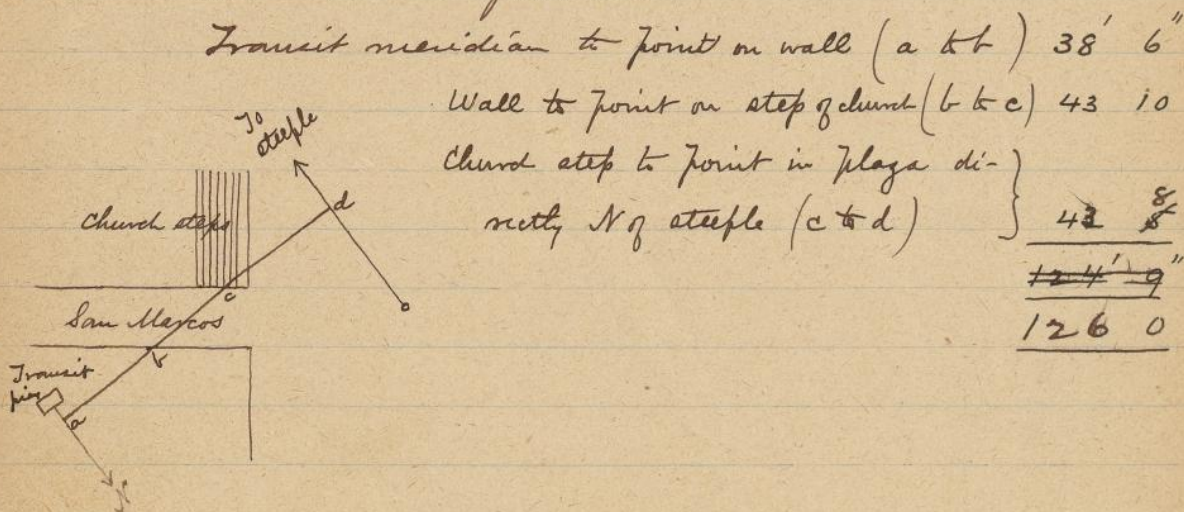 Transit meridian to point on wall (a to b) 38' 6"
Wall to point on step of church (b to c) 43 10
Church step to point in plaza di-
rectly N of steeple (c to d) } 43 8
124' 9"
126 0
To
steeple
d
Church steps
c
San Marcos
b
Transit
pier
a
N